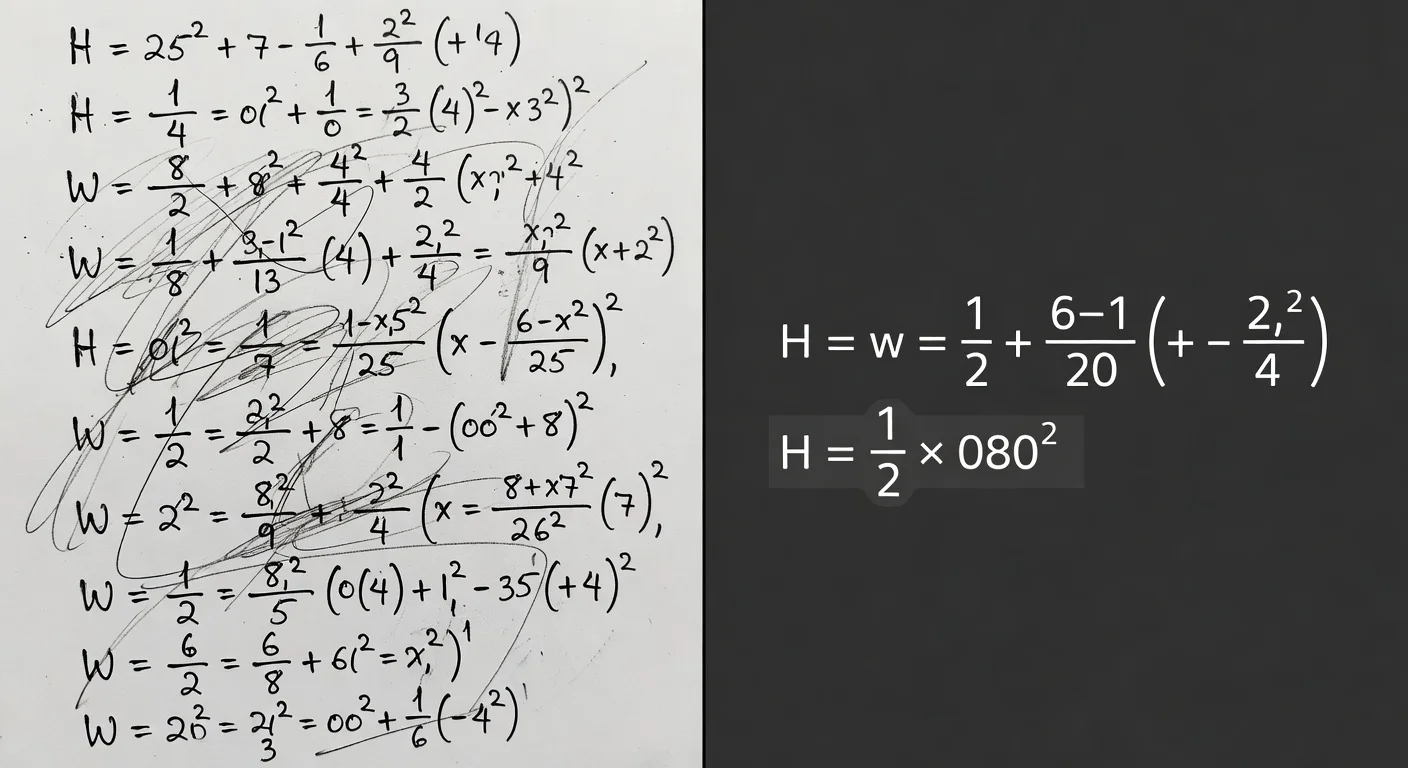 H = 25² + 7 - 1/6 + 2²/9 (+'4)
H = 1/4 = 0(² + 1/0 = 3/2 (4)² - x3²)²
W = 8/2 + 8² + 4²/4 + 4/2 (x ² + 4²
W = 1/8 + 3,-1²/13 (4) + 2,²/4 = x,²/9 (x+2²)
H = 0(² = 1/7 = 1-x,5²/25 (x - 6-x²/25)²,
W = 1/2 = 2,²/2 + 8 = 1/1 - (00² + 8)²
W = 2² = 8,²/9 + 2²/4 (x = 8+x7²/26² (7)²,
W = 1/2 = 8,²/5 (0(4) + 1,² - 35'(+4)²
W = 6/2 = 6/8 + 6(² = x,²)¹
W = 20² = 2(²/3 = 00² + 1/6 (-4²)'
H = w = 1/2 + 6−1/20 (+ − 2,²/4)
H = 1/2 × 080²